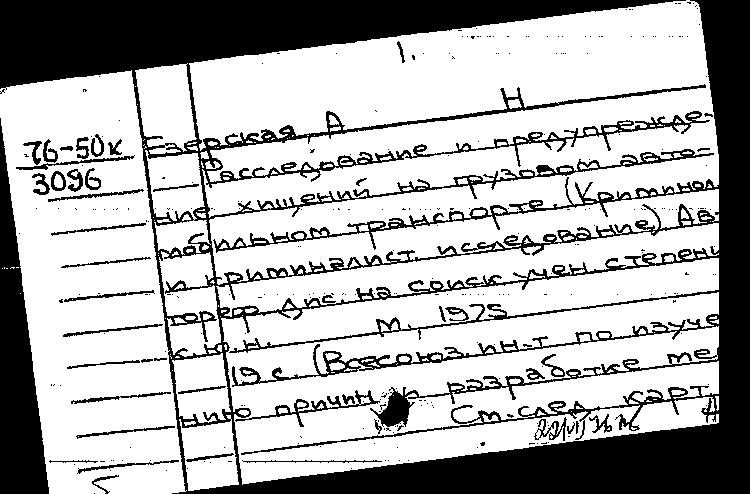 1.
76-50к Езерская, А Н
3096 Расследование и предупрежде-
ние хищений на грузовом авто-
мобильном транспорте. (Криминол.
и криминалист. исследование) Ав-
тореф. дис. на соиск. учен. степени
к.ю.н. М., 1975
19 с. (Всесоюз. ин-т по изуче
нию причин и разработке ме
См. след. карт.